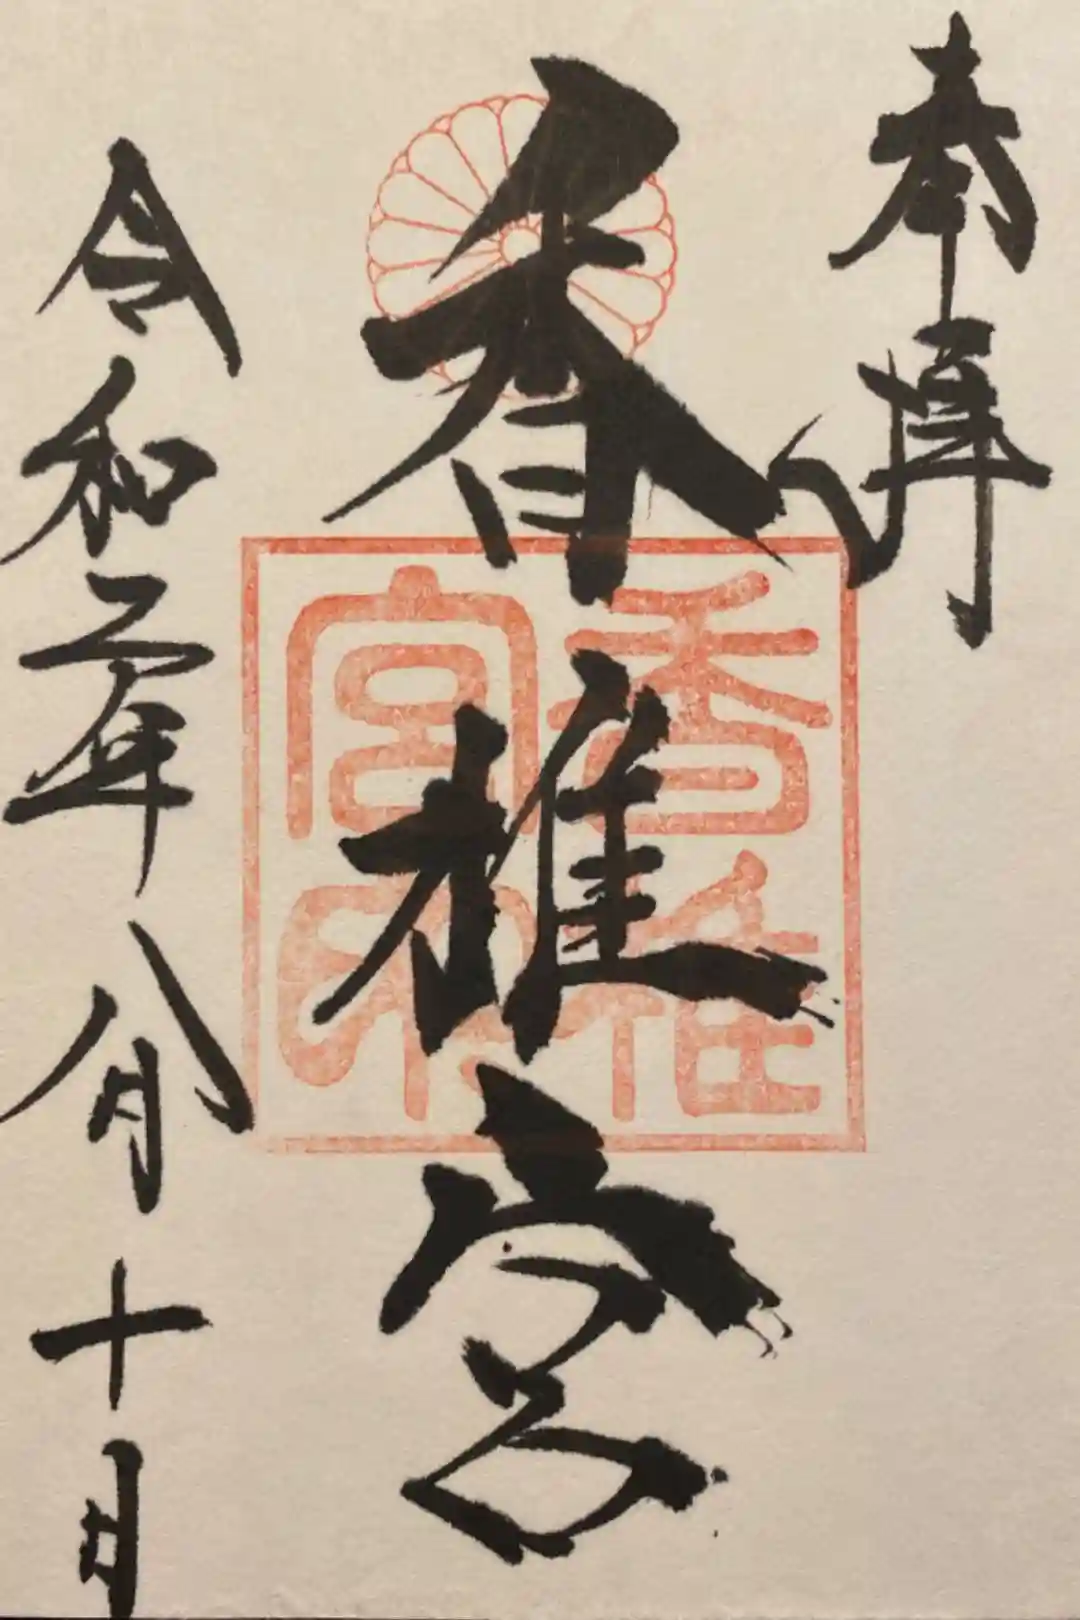 奉拝
香椎宮
香椎宮印
令和二年八月十日